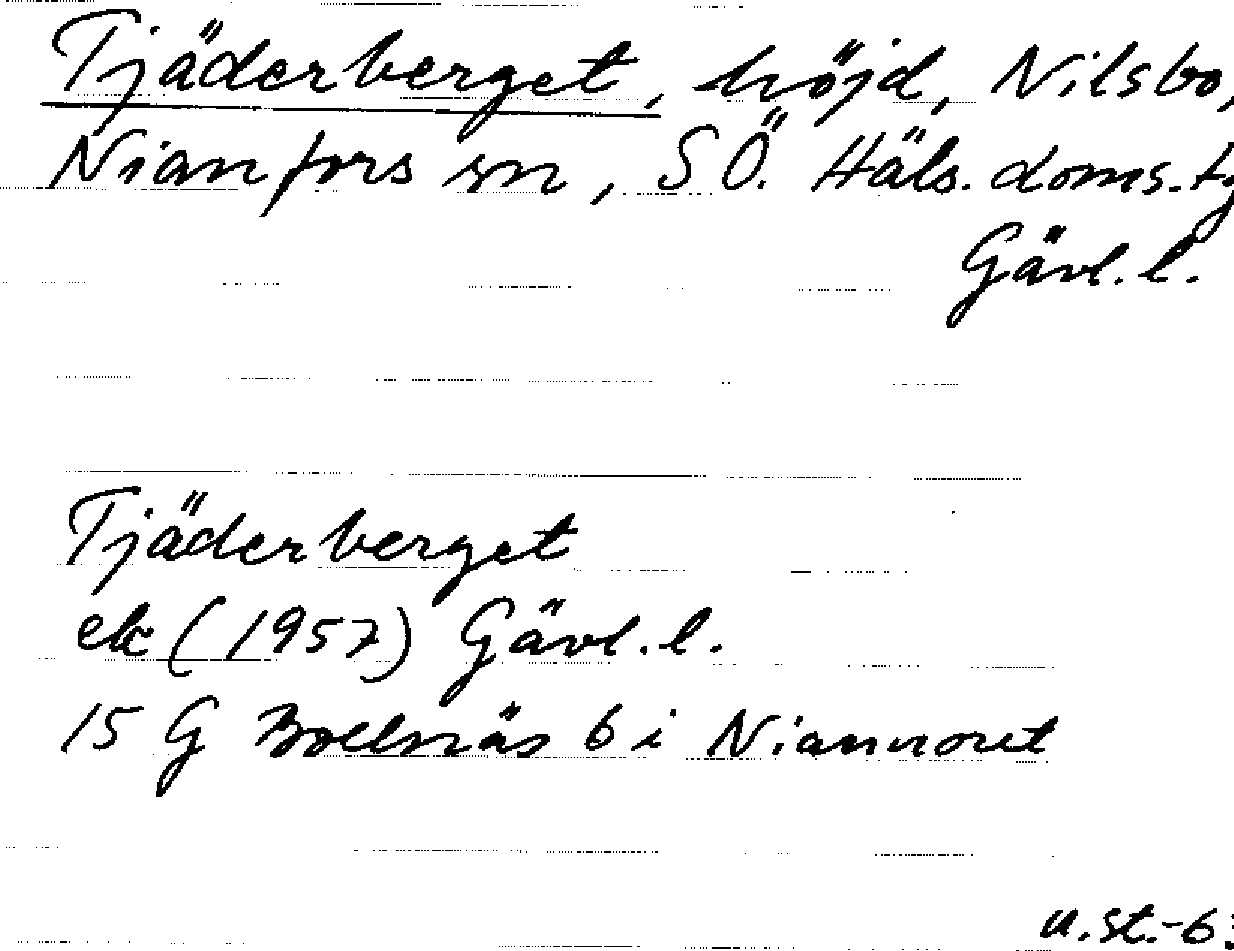 Tjäderberget, höjd, Nilsbo,
Nianfors sn, SÖ. Häls. doms.
Gävl. l.
Tjäderberget
ek (1957) Gävl. l.
15 G Bollnäs 6 i Niannoret
u.st.-6